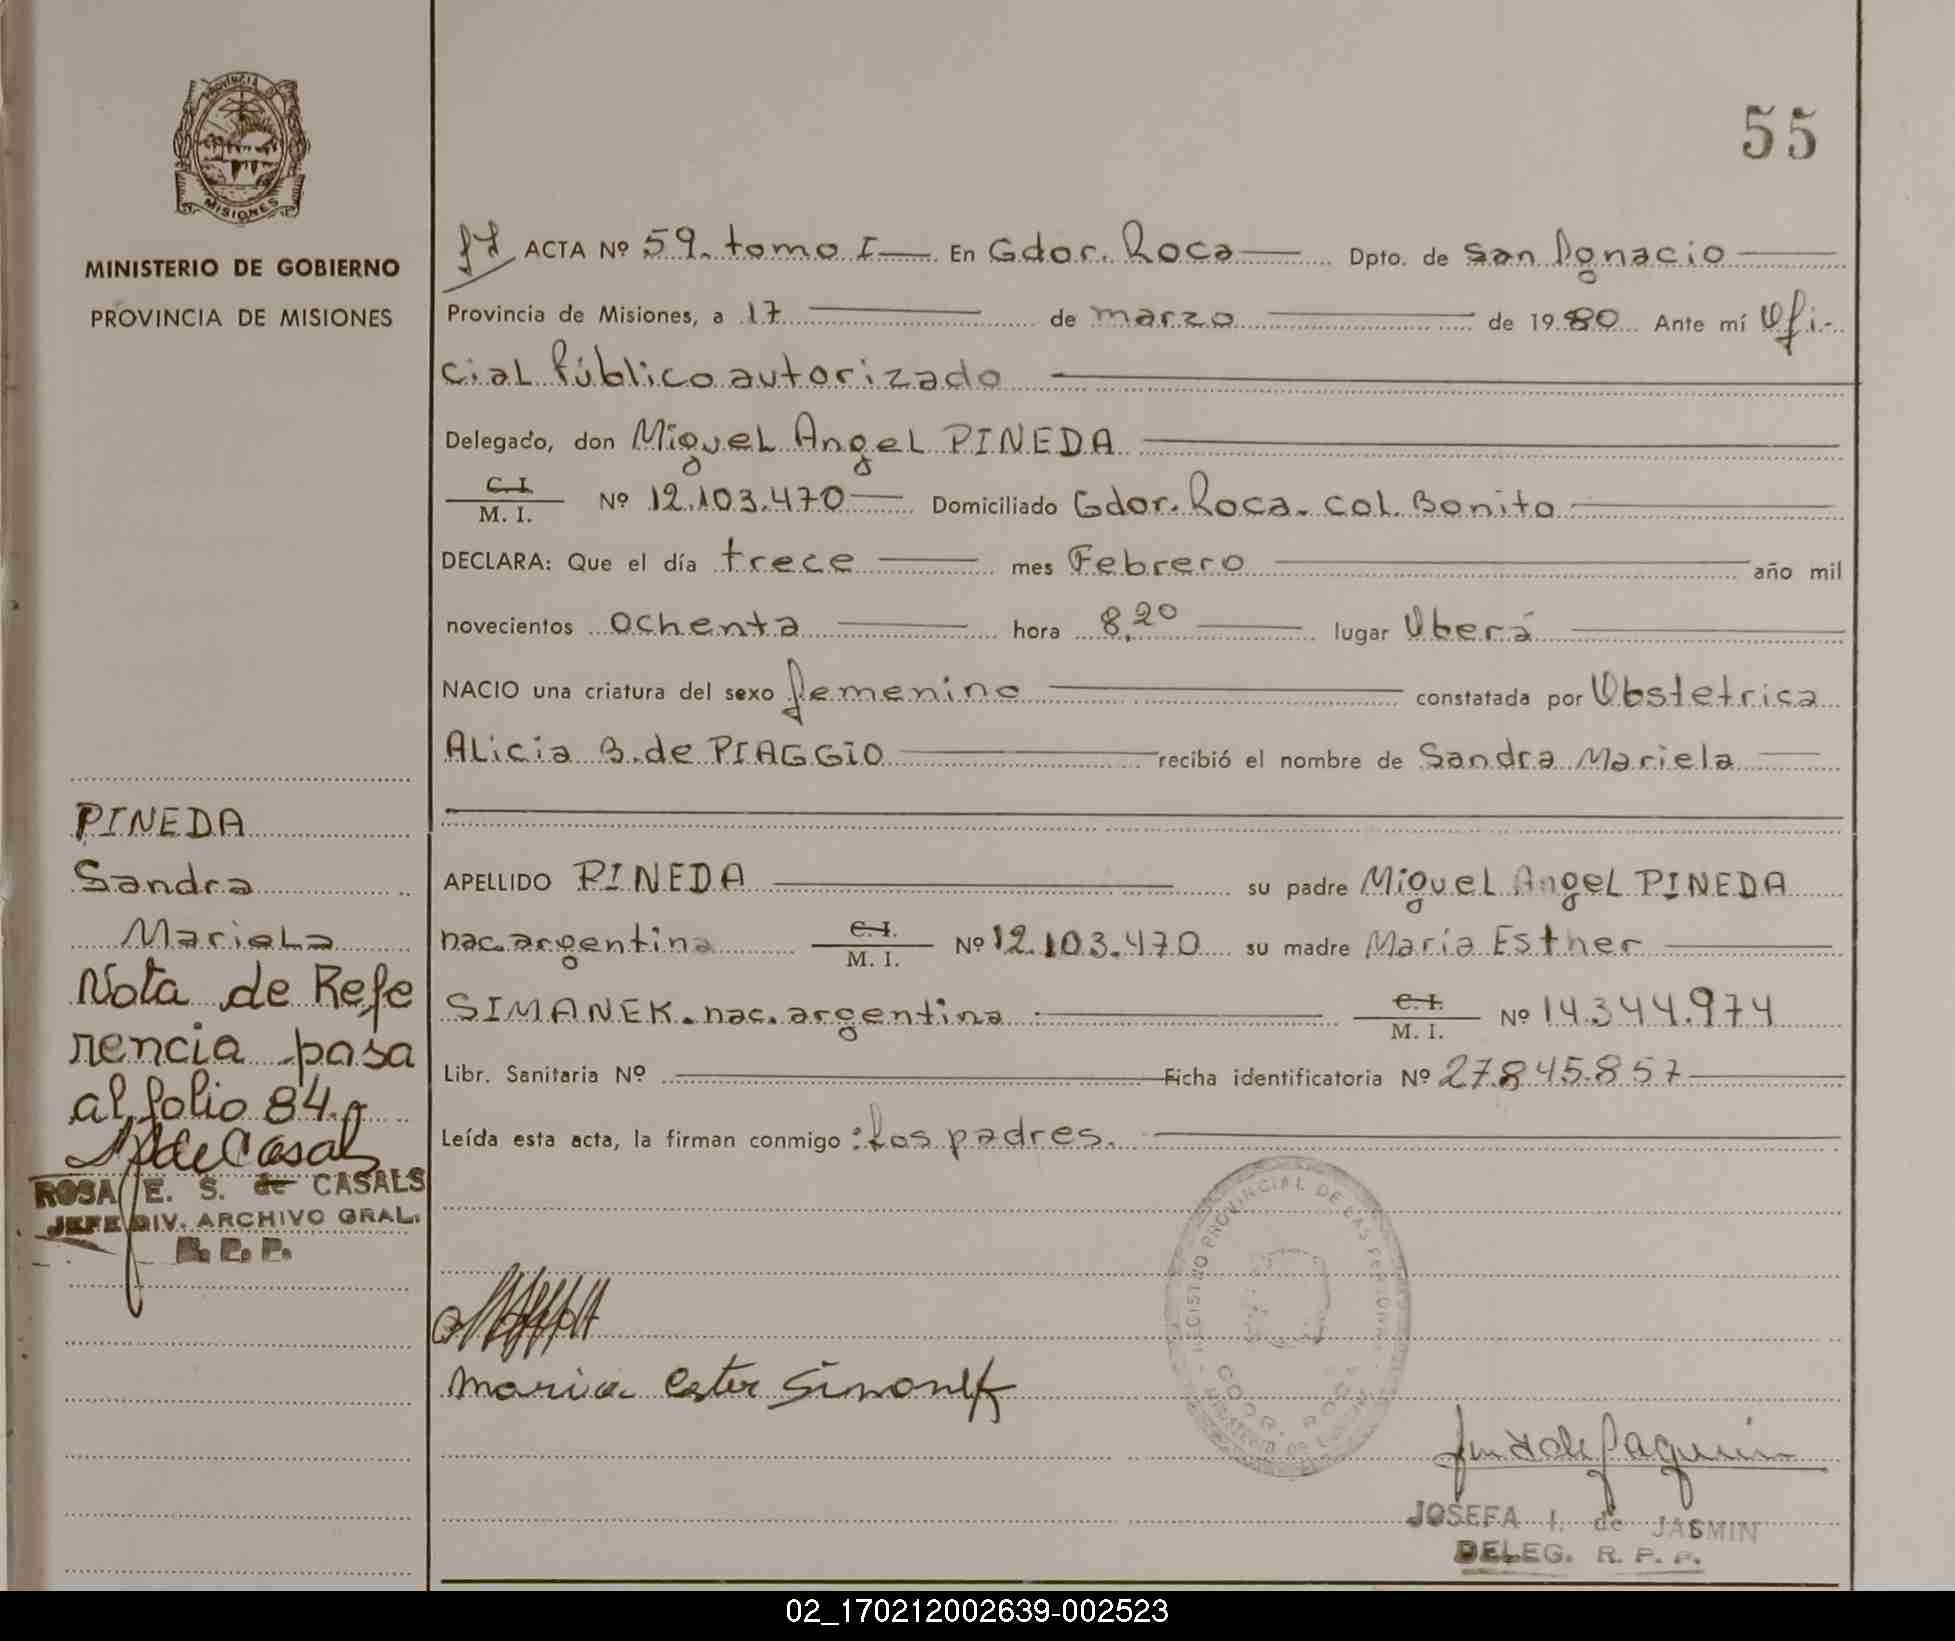 PROVINCIA DE
MISIONES
MINISTERIO DE GOBIERNO
PROVINCIA DE MISIONES
55
ACTA Nº 59. tomo I— En Gdor. Roca— Dpto. de San Ignacio
Provincia de Misiones, a 17 de marzo de 1980 Ante mí Ofi-
cial Público autorizado
Delegado, don Miguel Angel PINEDA
C.I.
M. I. Nº 12.103.470— Domiciliado Gdor. Roca. col. Bonito
DECLARA: Que el día trece mes Febrero año mil
novecientos ochenta hora 8,20 lugar Oberá
NACIO una criatura del sexo femenino constatada por Obstetrica
Alicia B. de PIAGGIO recibió el nombre de Sandra Mariela
APELLIDO PINEDA su padre Miguel Angel PINEDA
nac. argentina C.I. M. I. Nº 12.103.470 su madre María Esther
SIMANEK. nac. argentina C.I. M. I. Nº 14.344.974
Libr. Sanitaria Nº Ficha identificatoria Nº 27.845.857
Leída esta acta, la firman conmigo: Los padres.
PINEDA
Sandra
Mariela
Nota de Refe
rencia pasa
al folio 84.
de Casals
ROSA E. S. de CASALS
JEFE DIV. ARCHIVO GRAL.
R. P. P.
REGISTRO PROVINCIAL DE LAS PERSONAS
GDOR. ROCA
Maria Ester Simonek
JOSEFA I. de JASMIN
DELEG. R. P. P.
02_170212002639-002523